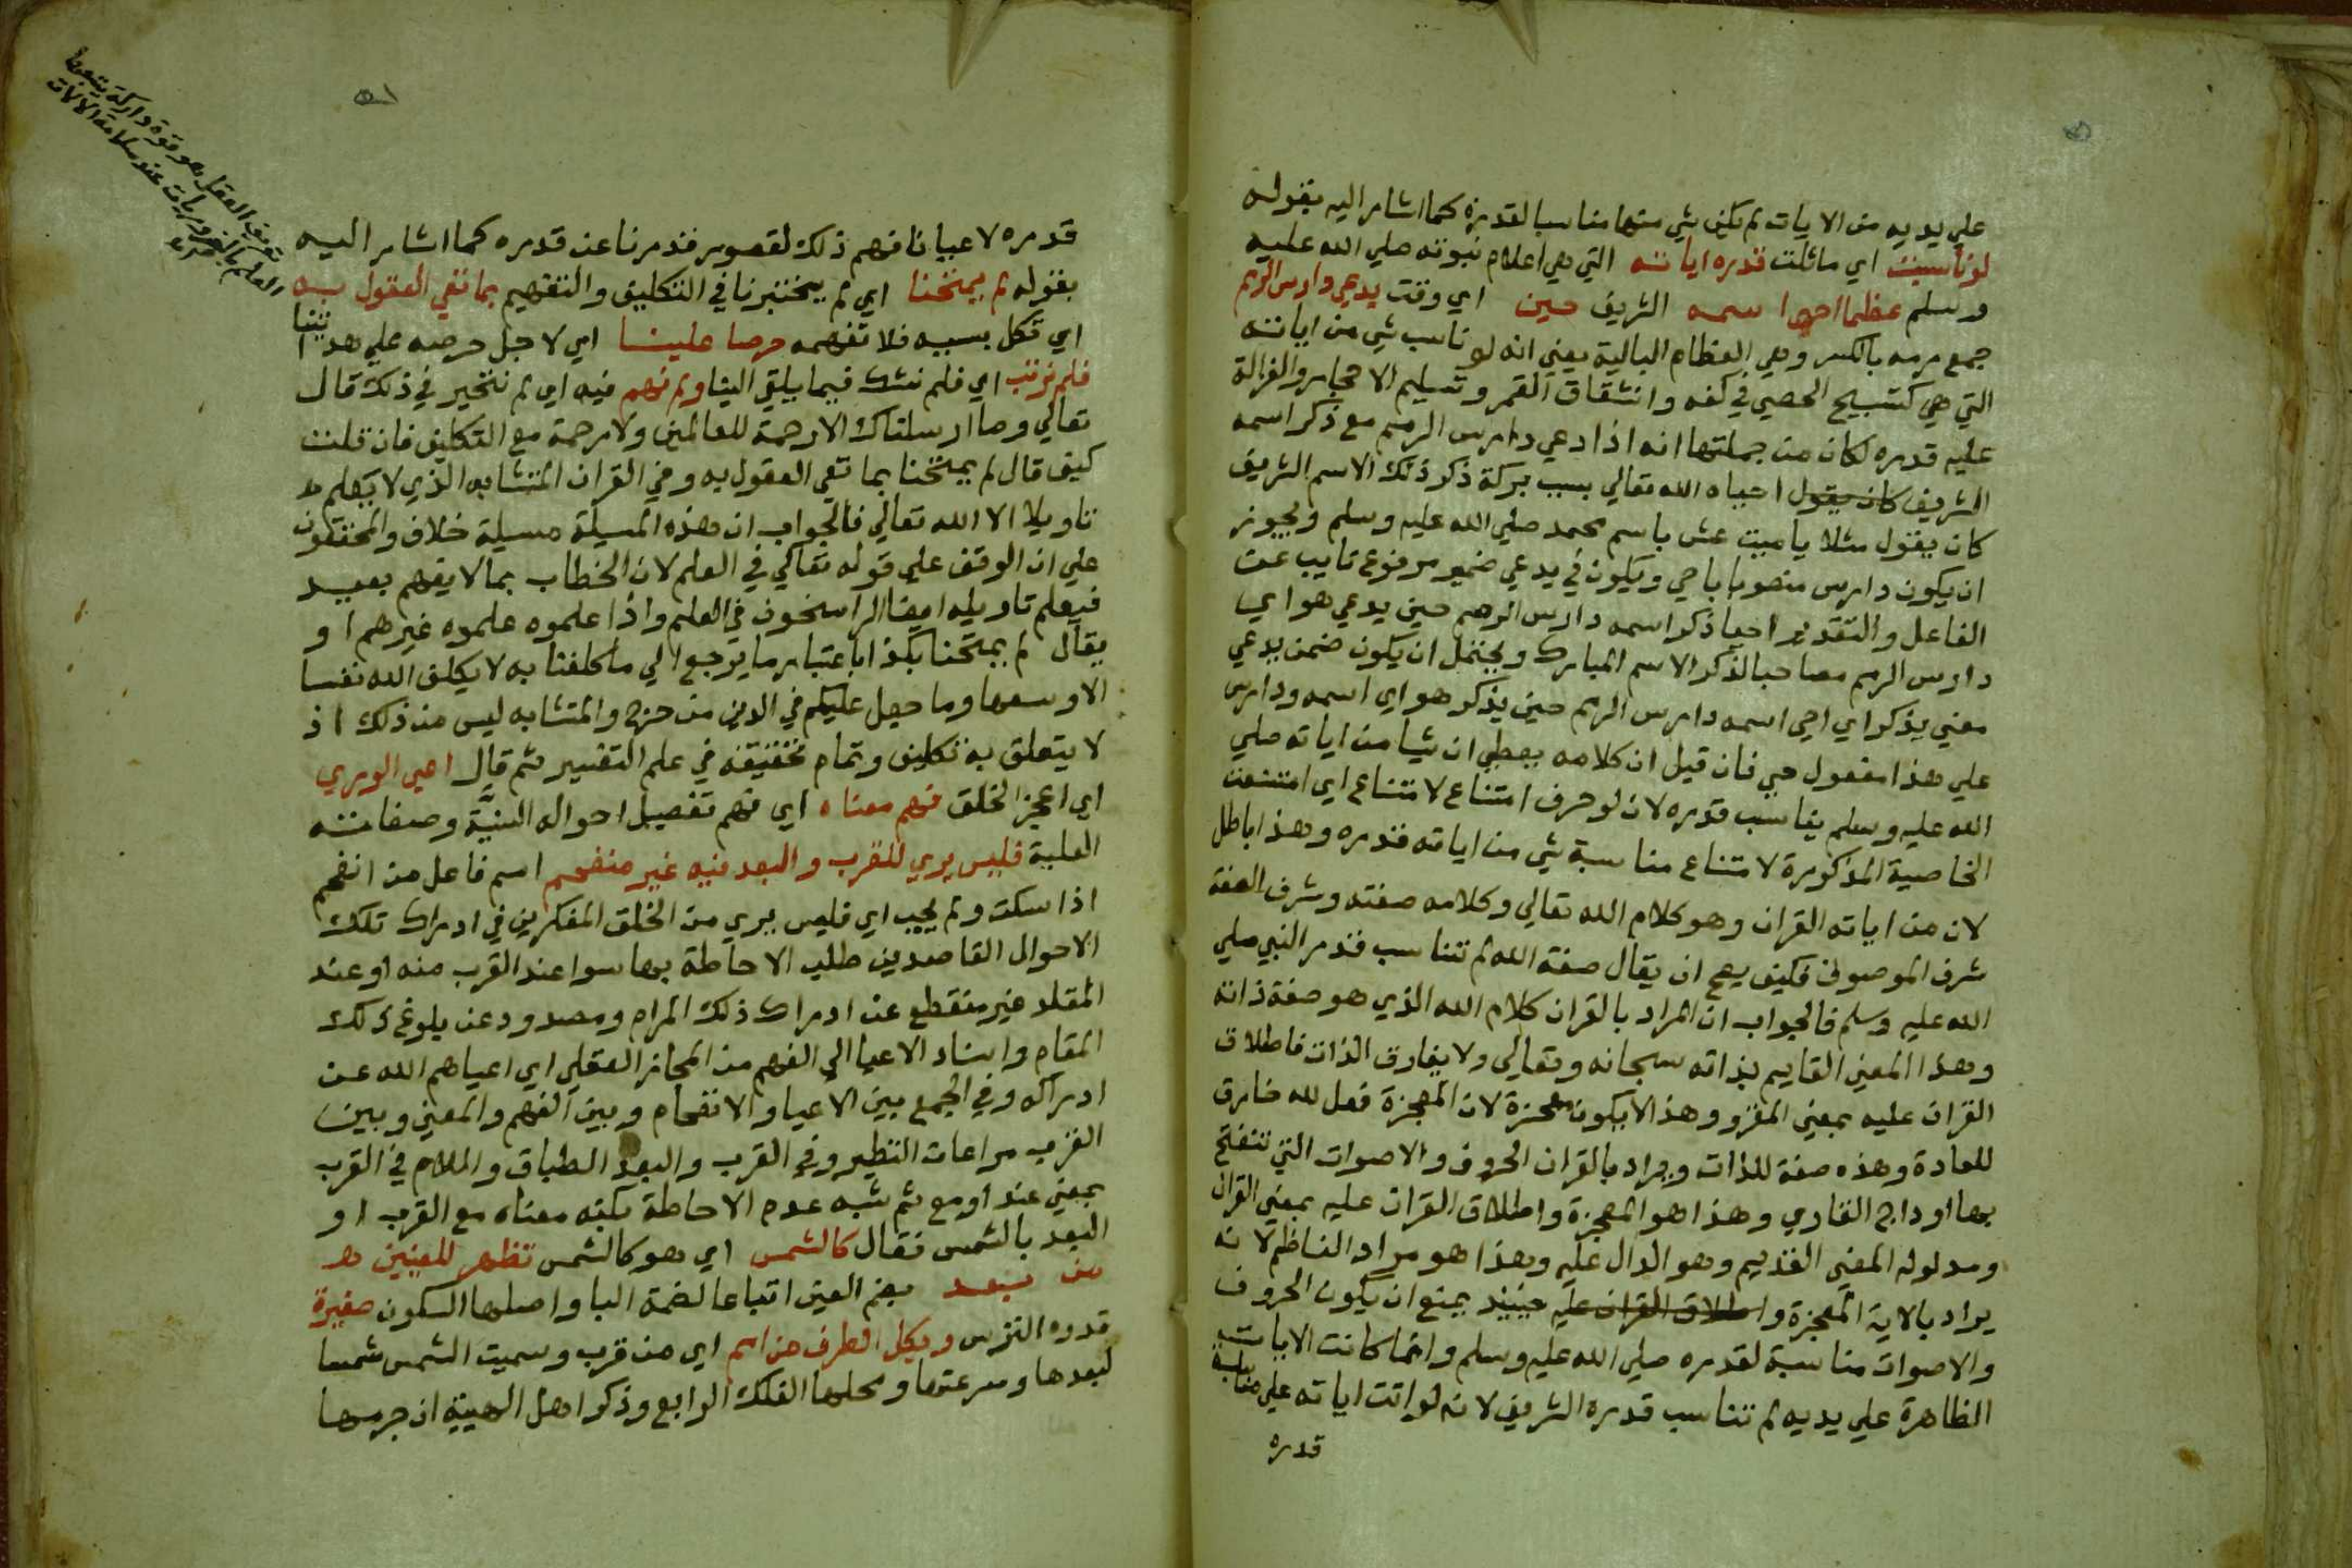 علي يديه من الايات لم يكن شي منها مناسبا لقدره كما اشار اليه بقوله
لو ناسبت اي ماثلت قدره اياته التي هي اعلام نبوته صلي الله عليه
وسلم عظما احيا اسمه الشريف حين اي وقت يدعي دارس الرمم
جمع رمه بالكسر وهي العظام البالية يعني انه لو ناسب شي من اياته
التي هي كتسبيح الحصي في كفه وانشقاق القمر وتسليم الاحجار والغزالة
عليه قدره لكان من جملتها انه اذا دعي دارس الرمم مع ذكر اسمه
الشريف كان يقول احياه الله تعالي بسبب بركة ذكر ذلك الاسم الشريف
كان يقول مثلا يا ميت عش باسم محمد صلي الله عليه وسلم ويجوز
ان يكون دارس منصوبا باحي ويكون في يدعي ضمير مرفوع نايب عن
الفاعل والتقدير احيا ذكر اسمه دارس الرمم حين يدعي هو اي
دارس الرمم مصاحبا لذكر الاسم المبارك ويحتمل ان يكون ضمن يدعي
معني يذكر اي احي اسمه دارس الرمم حين يذكر هو اي اسمه ودارس
علي هذا مفعول حي فان قيل ان كلامه يعطي ان شيا من اياته صلي
الله عليه وسلم يناسب قدره لان لو حرف امتناع لامتناع اي امتنعت
الخاصية المذكورة لامتناع مناسبة شي من اياته قدره وهذا باطل
لان من اياته القران وهو كلام الله تعالي وكلامه صفته وشرف الصفة
شرف الموصوف فكيف يصح ان يقال صفة الله لم تناسب قدر النبي صلي
الله عليه وسلم فالجواب ان المراد بالقران كلام الله الذي هو صفة ذاته
وهذا المعني القايم بذاته سبحانه وتعالي ولا يفارق الذات فاطلاق
القران عليه بمعني المقرو وهذا لا يكون معجزة لان المعجزة فعل لله خارق
للعادة وهذه صفة للذات ويراد بالقران الحروف والاصوات التي تنفتح
بها اوداج القاري وهذا هو المعجزة واطلاق القران عليه بمعني القران
ومدلوله المعني القديم وهو الدال عليه وهذا هو مراد الناظم لانه
يراد بالاية المعجزة واطلاق القران عليه حينيذ يمنع ان يكون الحروف
والاصوات مناسبة لقدره صلي الله عليه وسلم وانما كانت الايات
الظاهرة علي يديه لم تناسب قدره الشريف لانه لو اتت اياته علي مناسبة
قدره
قدره لاعيانا فهم ذلك لقصور قدرنا عن قدره كما اشار اليه
بقوله لم يمتحنا اي لم يختبرنا في التكليف والتفهيم بما تعي العقول به
اي تكل بسببه فلا تفهمه حرصا علينا اي لاجل حرصه علي هدايتنا
فلم نرتب اي فلم نشك فيما يلقي الينا ولم نهم فيه اي لم نتحير في ذلك قال
تعالي وما ارسلناك الا رحمة للعالمين ولا رحمة مع التكليف فان قلت
كيف قال لم يمتحنا بما تعي العقول به وفي القران المتشابه الذي لا يعلم
تاويله الا الله تعالي فالجواب ان هذه المسيلة مسيلة خلاف والمحققون
علي ان الوقف علي قوله تعالي في العلم لان الخطاب بما لا يفهم بعيد
فيعلم تاويله ايضا الراسخون في العلم واذا علموه علموه غيرهم او
يقال لم يمتحنا بكذا باعتبار ما يرجع الي ما كلفنا به لا يكلف الله نفسا
الا وسعها وما جعل عليكم في الدين من حرج والمتشابه ليس من ذلك اذ
لا يتعلق به تكليف وتمام تحقيقه في علم التفسير ثم قال اعيي الوري
اي اعجز الخلق فهم معناه اي فهم تفصيل احواله السنية وصفاته
العلية فليس يري للقرب والبعد فيه غير منفحم اسم فاعل من انفحم
اذا سكت ولم يجب اي فليس يري من الخلق المفكرين في ادراك تلك
الاحوال القاصدين طلب الاحاطة بها سوا عند القرب منه او عند
غير منقطع عن ادراك ذلك المرام ومصدود عن بلوغ ذلك
المقام واسناد الاعيا الي الفهم من المجاز العقلي اي اعياهم الله عن
ادراكه وفي الجمع بين الاعيا والانفحام وبين الفهم والمعني وبين
القرب مراعات النظير وفي القرب والبعد الطباق واللام في القرب
بمعني عند او مع ثم شبه عدم الاحاطة بكنه معناه مع القرب او
البعد بالشمس فقال كالشمس اي هو كالشمس تظهر للعينين
من بعد بضم العين اتباعا لضمة البا واصلها السكون صغيرة
قدره الترس وتكل الطرف من امم اي من قرب وسميت الشمس شمسا
لبعدها وسرعتها ومحلها الفلك الرابع وذكر اهل الهيية ان جرمها
تعريف العقل هو قوة داركة يتبعها
العلم بالضروريات عند سلامة الالات